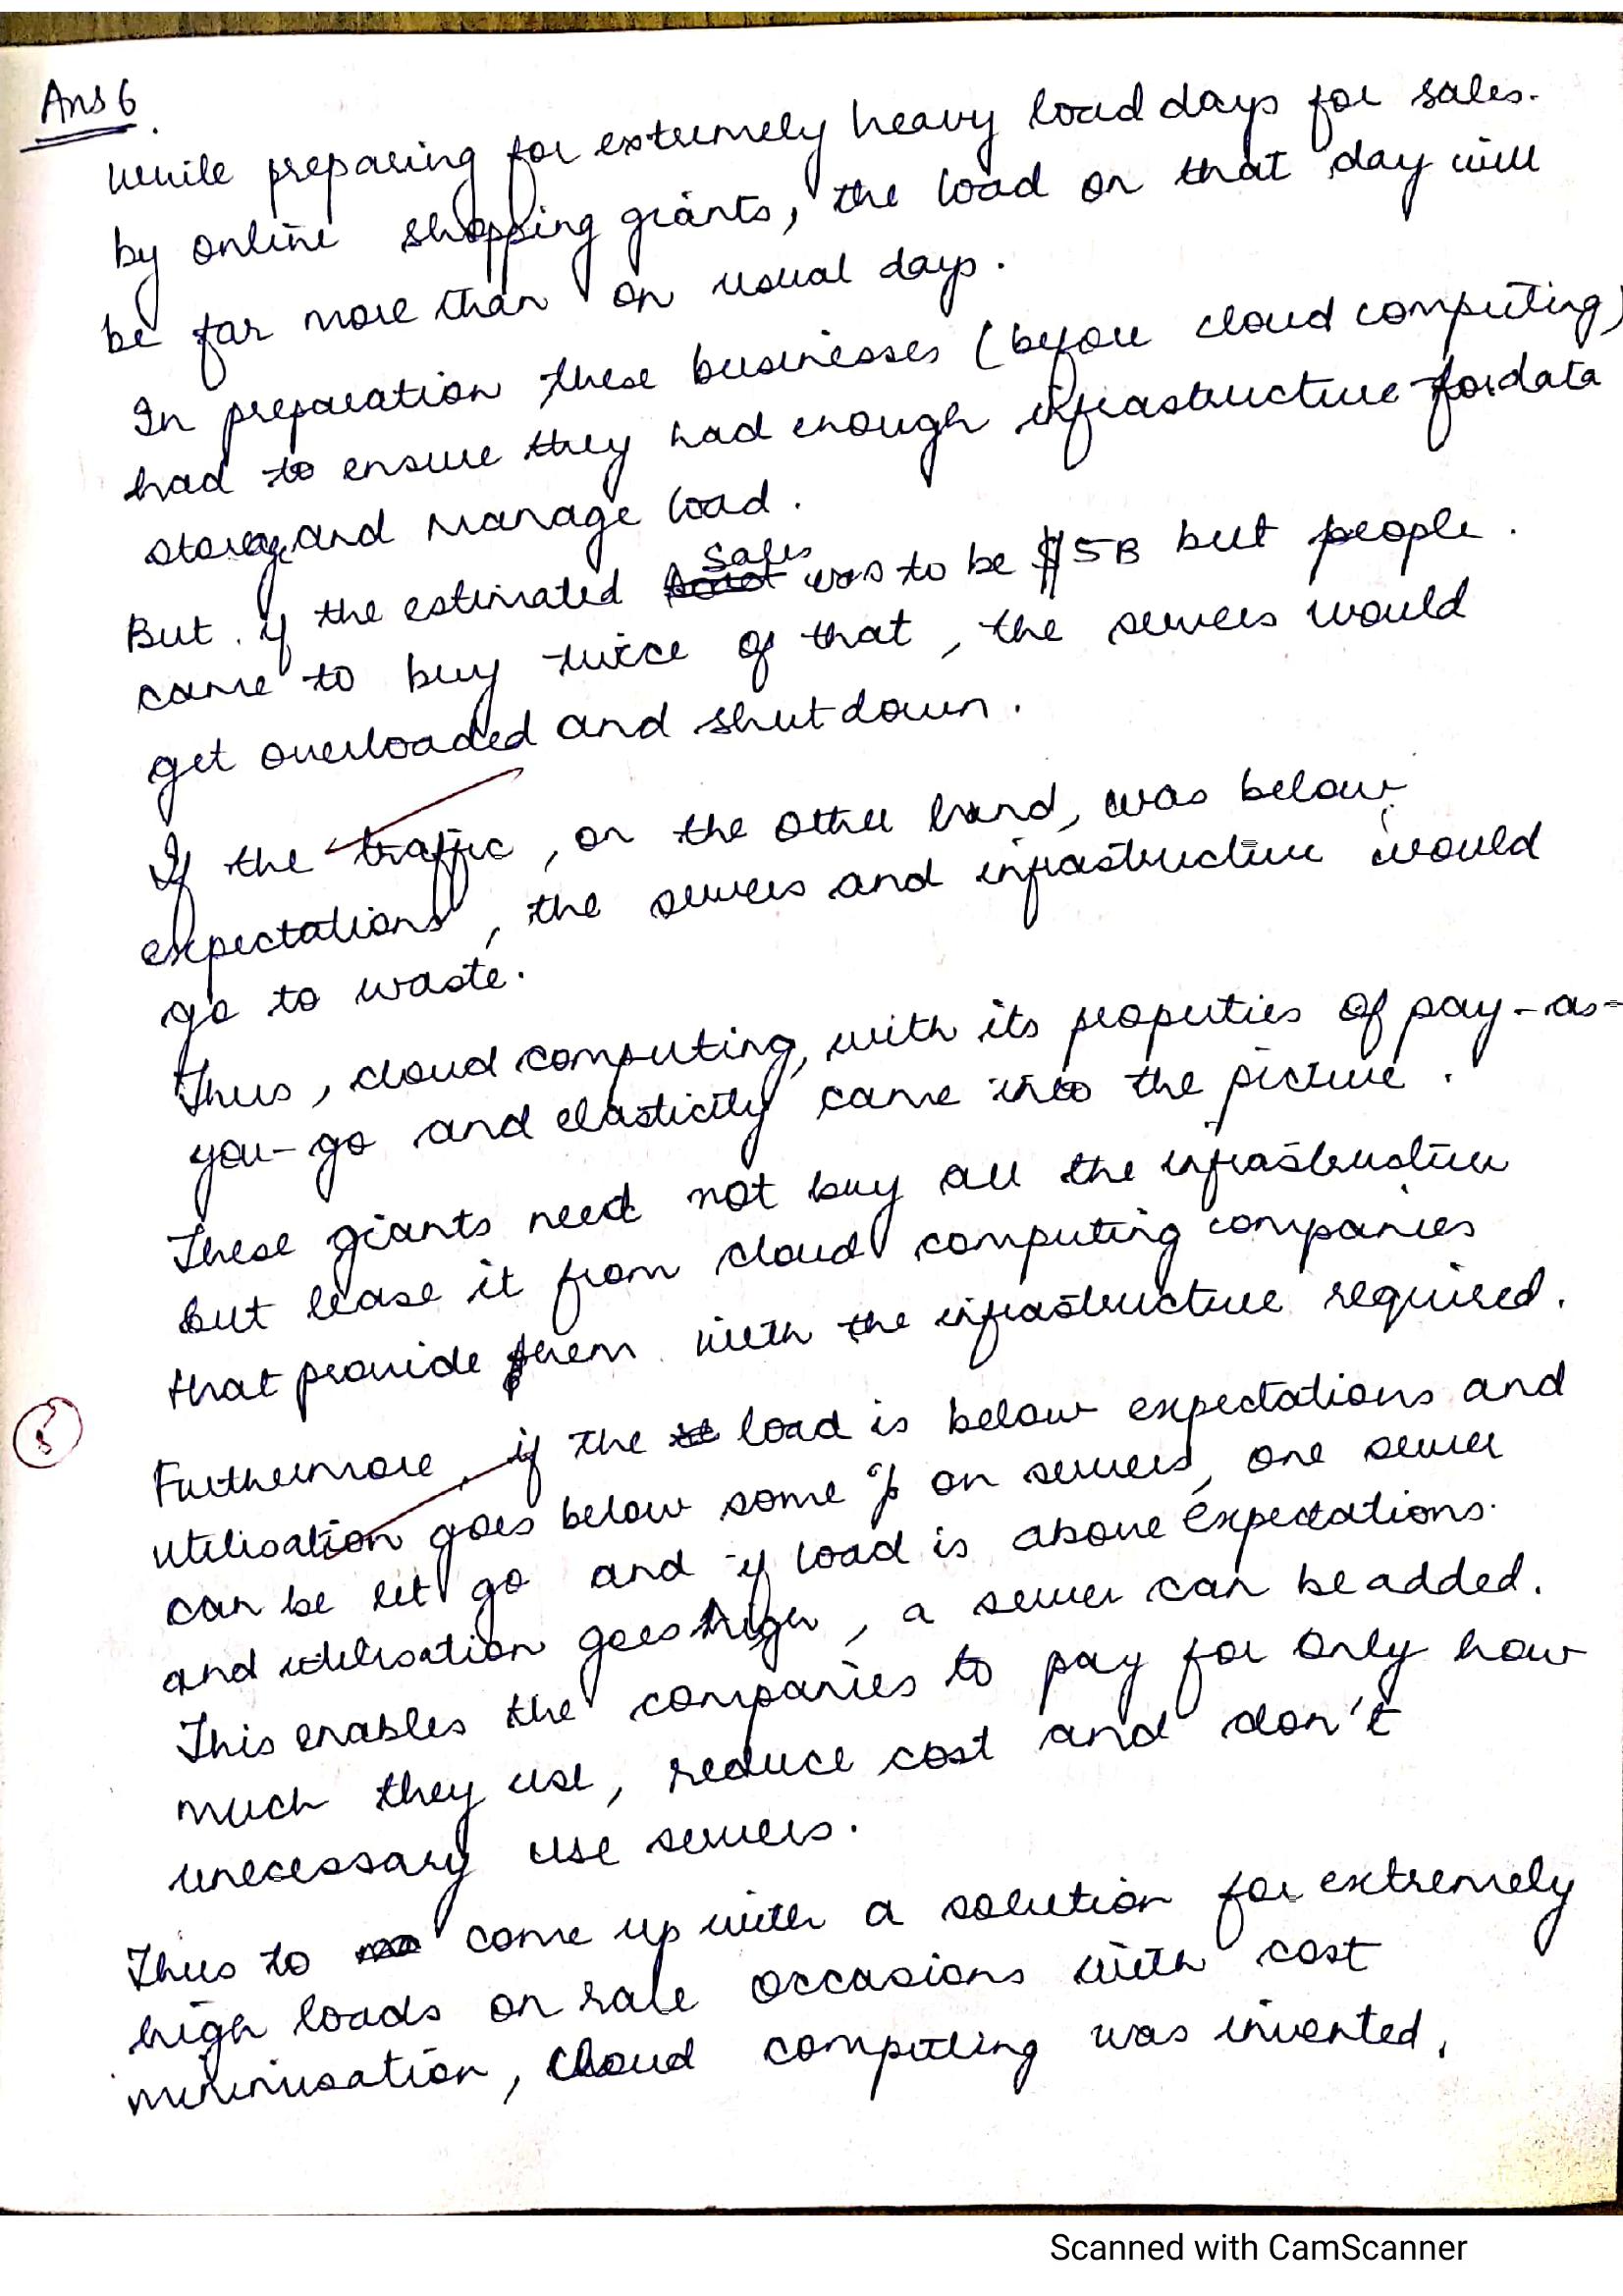 Ans 6.
While preparing for extremely heavy load days for sales.
by online shopping giants, the load on that day will
be far more than on usual days.
In preparation these businesses (before cloud computing)
had to ensure they had enough infrastructure for data
storage and manage load.
But if the estimated sales was to be $5B but people.
came to buy twice of that, the servers would
get overloaded and shut down.
If the traffic, on the other hand, was below
expectations, the servers and infrastructure would
go to waste.
Thus, cloud computing, with its properties of pay-as-
you-go and elasticity came into the picture.
These giants need not buy all the infrastructure
but lease it from cloud computing companies
that provide them with the infrastructure required.
Furthermore, if the load is below expectations and
utilisation goes below some % on servers, one server
can be let go and if load is above expectations.
and utilisation goes higer, a server can be added.
This enables the companies to pay for only how
much they use, reduce cost and don't
unecessary use servers.
Thus to come up with a solution for extremely
high loads on sale occasions with cost
minimisation, cloud computing was invented.
Scanned with CamScanner